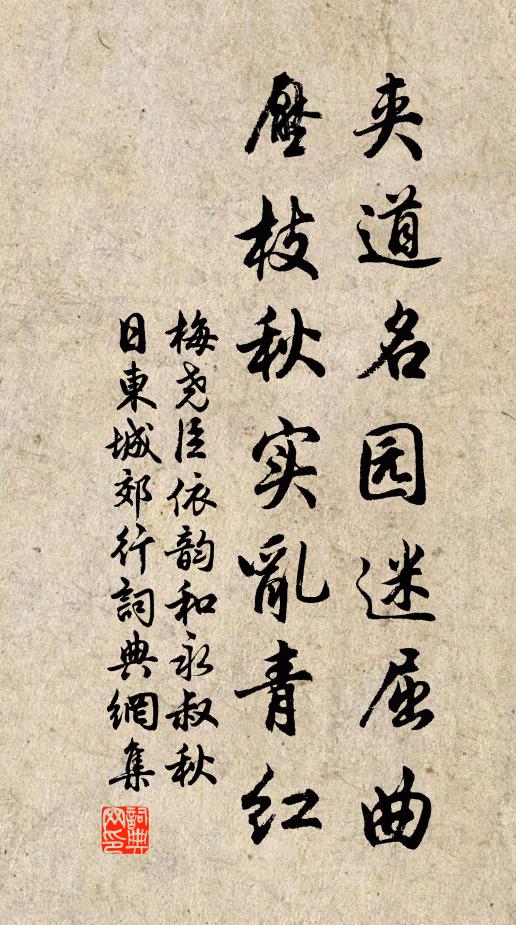 夹道名园迷屈曲
壓枝秋实亂青红
梅尧臣依韵和永叔秋
日東城郊行詞典網集
詞典网印